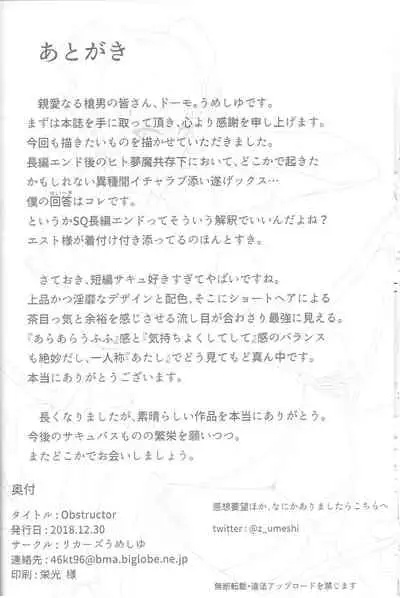 あとがき
親愛なる槍男の皆さん、ドーモ。うめしゆです。
まずは本誌を手に取って頂き、心より感謝を申し上げます。
今回も描きたいものを描かせていただきました。
長編エンド後のヒト夢魔共存下において、どこかで起きた
かもしれない異種間イチャラブ添い遂げックス…
僕の回答はコレです。
というかSQ長編エンドってそういう解釈でいいんだよね?
エスト様が着付け付き添ってるのほんとすき。
さておき、短編サキュ好きすぎてやばいですね。
上品かつ淫靡なデザインと配色、そこにショートヘアによる
茶目っ気と余裕を感じさせる流し目が合わさり最強に見える。
『あらあらうふふ』感と『気持ちよくしてして』感のバランス
も絶妙だし、一人称『あたし』でどう見てもど真ん中です。
本当にありがとうございます。
長くなりましたが、素晴らしい作品を本当にありがとう。
今後のサキュバスものの繁栄を願いつつ。
またどこかでお会いしましょう。
奥付
タイトル:Obstructor
発行日:2018.12.30
サークル:リカーズうめしゆ
連絡先:46kt96@bma.biglobe.ne.jp
印刷:栄光 様
感想要望ほか、なにかありましたらこちらへ
twitter:@z_umeshi
無断転載・違法アップロードを禁じます